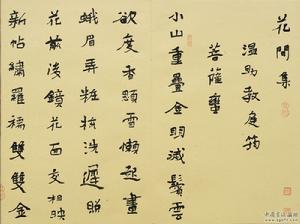 花間集
溫助教庭筠
菩薩蠻
小山重疊金明滅鬢雲
欲度香顋雪懶起畫
蛾眉弄粧梳洗遲照
花前後鏡花面交相映
新帖繡羅襦雙雙金